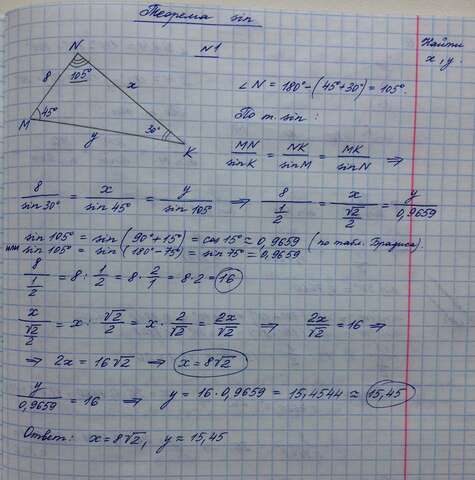 Теорема sin
N1
Найти
x, y
M 45° 8 N 105° x y 30° K
∠N = 180° - (45° + 30°) = 105°.
По т. sin:
MN/sin K = NK/sin M = MK/sin N ⇒
8/sin 30° = x/sin 45° = y/sin 105° ⇒ 8/(1/2) = x/(√2/2) = y/0,9659
sin 105° = sin(90° + 15°) = cos 15° ≈ 0,9659
или sin 105° = sin(180° - 75°) = sin 75° = 0,9659 (по табл. Брадиса)
8/(1/2) = 8 : 1/2 = 8 · 2/1 = 8·2 = 16
x/(√2/2) = x : √2/2 = x · 2/√2 = 2x/√2 ⇒ 2x/√2 = 16 ⇒
⇒ 2x = 16√2 ⇒ x = 8√2
y/0,9659 = 16 ⇒ y = 16 · 0,9659 = 15,4544 ≈ 15,45
Ответ: x = 8√2, y = 15,45